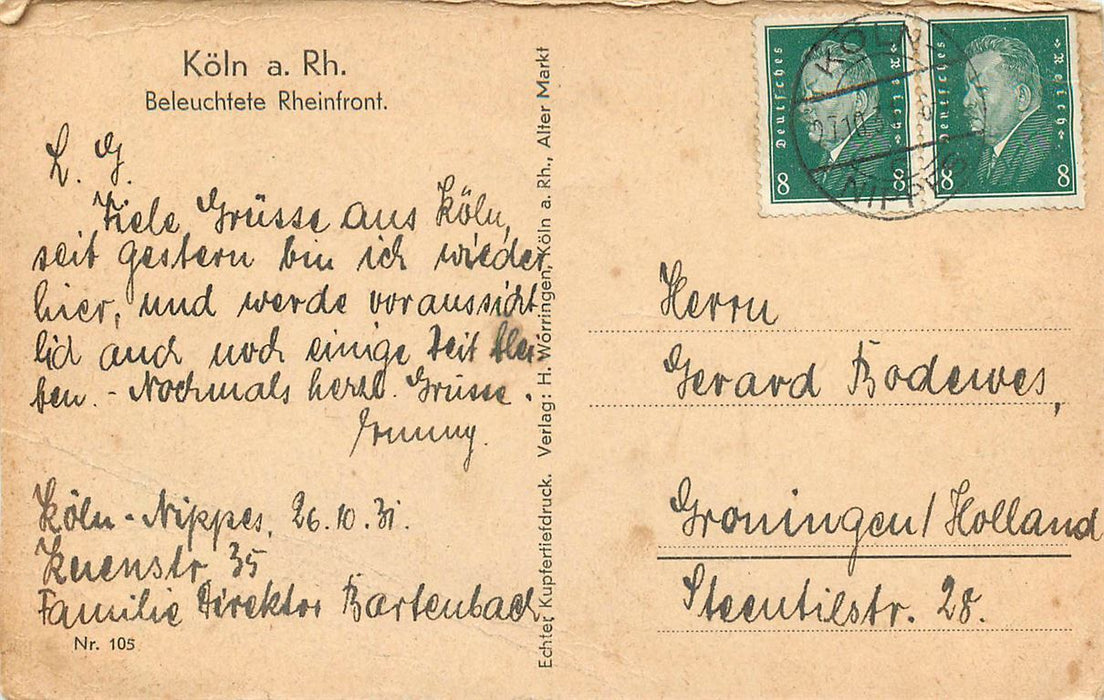 Köln a. Rh.
Beleuchtete Rheinfront.
L. G.
Viele Grüsse aus Köln,
seit gestern bin ich wieder
hier, und werde voraussicht
lich auch noch einige Zeit blei-
ben. - Nochmals herzl. Grüsse.
Köln-Nippes, 26.10.31.
35
Familie Direktor Bartenbach
Nr. 105
Echter Kupfertiefdruck. Verlag: H. Worringen, Köln a. Rh., Alter Markt
Deutsches Reich
8 8
Deutsches Reich
8 8
KÖLN
NIPPES
Herrn
Gerard Bodewes,
Groningen/Holland
Steentilstr. 28.